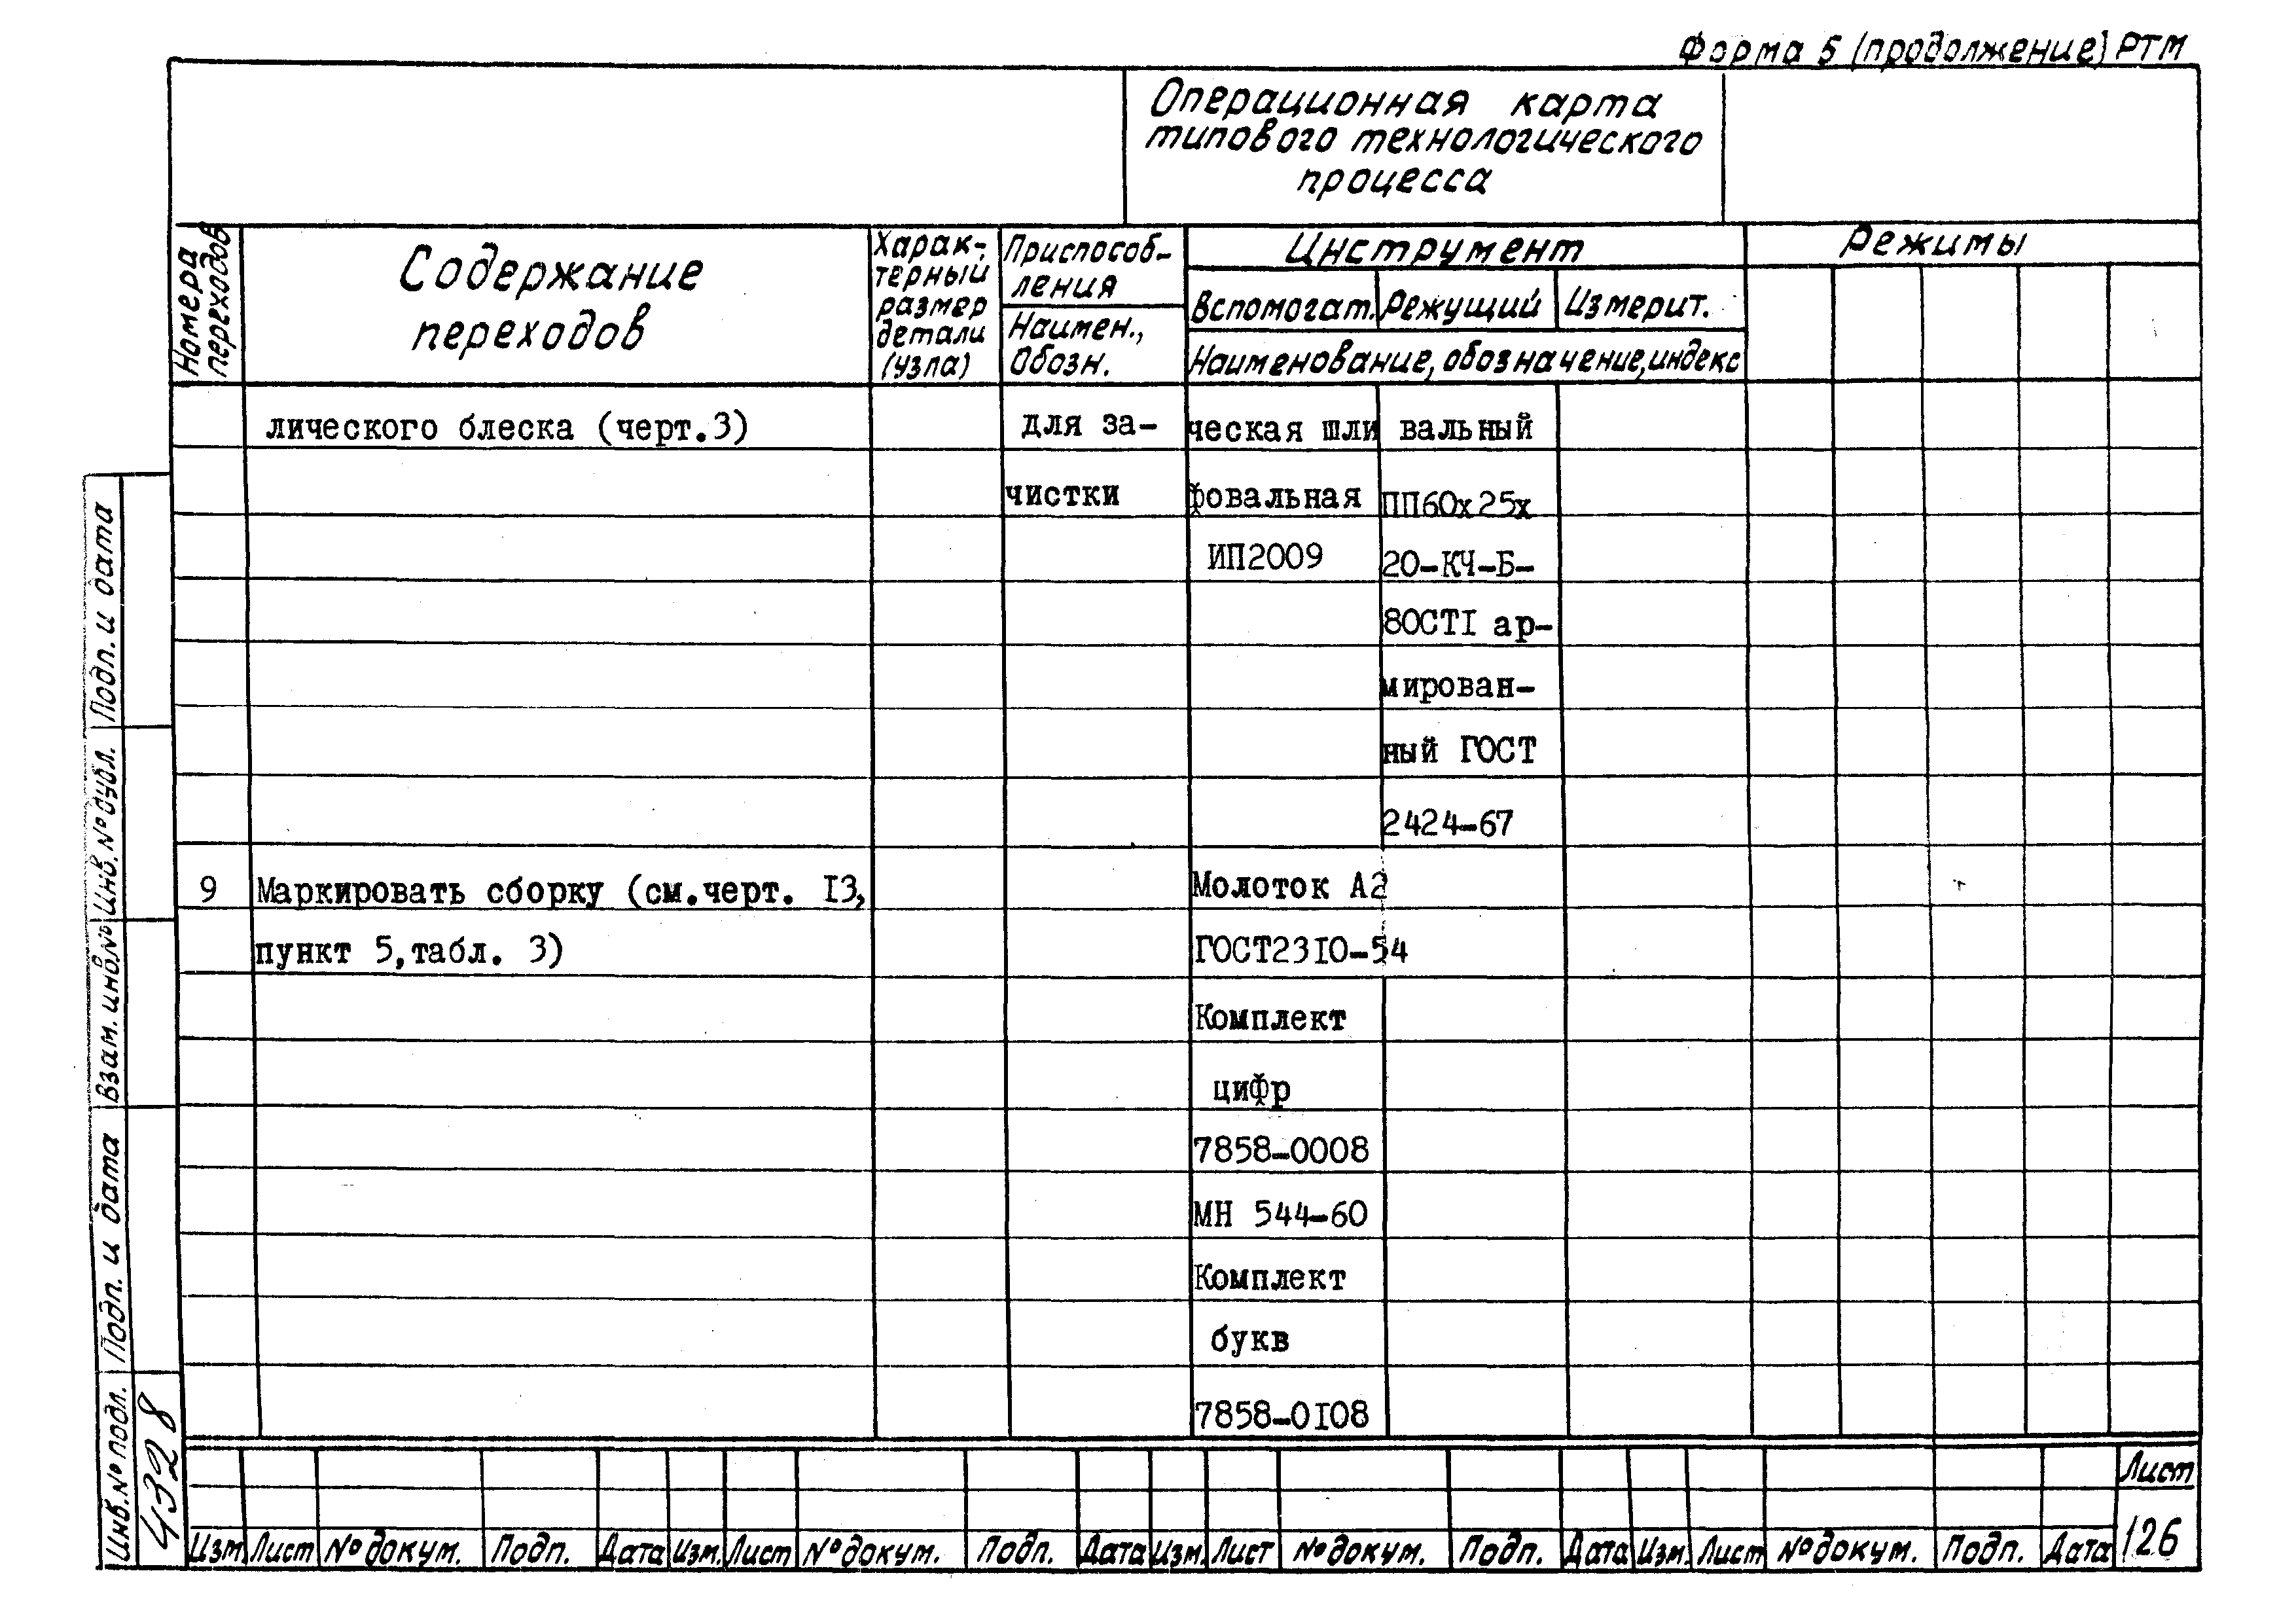 Форма 5 (продолжение) РТМ
Операционная карта
типового технологического
процесса
Номера
переходов
Содержание
переходов
Харак-
терный
размер
детали
(узла)
Приспособ-
ления
Наимен.,
Обозн.
Инструмент
Вспомогат. Режущий Измерит.
Наименование, обозначение, индекс
Режимы
лического блеска (черт.3) для за- ческая шли вальный
чистки фовальная ПП60х25х
ИП2009 20-КЧ-Б-
80СТ1 ар-
мирован-
ный ГОСТ
2424-67
9 Маркировать сборку (см.черт. 13, Молоток А2
пункт 5,табл. 3) ГОСТ2310-54
Комплект
цифр
7858-0008
МН 544-60
Комплект
букв
7858-0108
Подп. и дата
Инв. № дубл.
Взам. инв. №
Подп. и дата
Инв. № подл.
4328
Изм Лист № докум. Подп. Дата Изм. Лист № докум. Подп. Дата Изм. Лист № докум. Подп. Дата Изм. Лист № докум. Подп. Дата
Лист
126